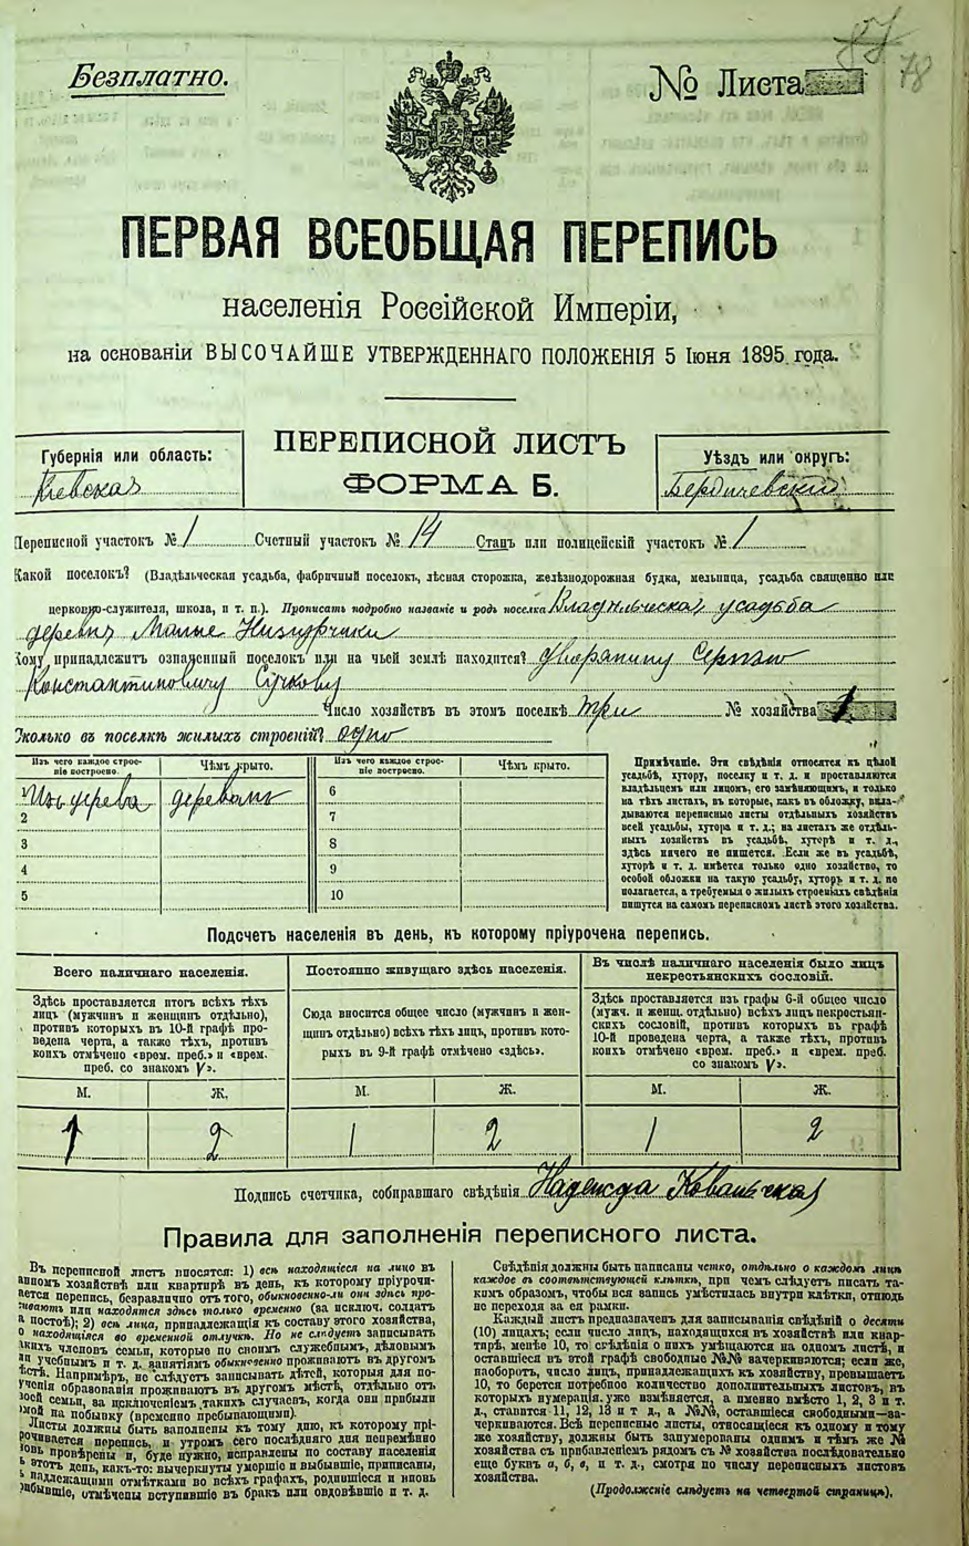 Безплатно.
№ Листа
78
ПЕРВАЯ ВСЕОБЩАЯ ПЕРЕПИСЬ
населенія Россійской Имперіи,
на основаніи ВЫСОЧАЙШЕ УТВЕРЖДЕННАГО ПОЛОЖЕНІЯ 5 Іюня 1895 года.
ПЕРЕПИСНОЙ ЛИСТЪ
ФОРМА Б.
Губернія или область:
Кіевская
Уѣздъ или округъ:
Бердичевскій
Переписной участокъ № 1 Счетный участокъ № 14 Станъ или полицейскій участокъ № 1
Какой поселокъ? (Владѣльческая усадьба, фабричный поселокъ, лѣсная сторожка, желѣзнодорожная будка, мельница, усадьба священно или
церковно-служителя, школа, и т. п.). Прописать подробно названіе и родъ поселка Владѣльческая усадьба
деревня Малые Низгурчики
Кому принадлежитъ означенный поселокъ или на чьей землѣ находится? Дворянину Сергѣю
Константиновичу Сучкову
Число хозяйствъ въ этомъ поселкѣ три № хозяйства 1
Сколько въ поселкѣ жилыхъ строеній? одно
Изъ чего каждое строеніе построено. Чѣмъ крыто. Изъ чего каждое строеніе построено. Чѣмъ крыто.
1 Изъ дерева деревомъ 6
2 7
3 8
4 9
5 10
Примѣчаніе. Эти свѣдѣнія относятся къ цѣлой
усадьбѣ, хутору, поселку и т. д. и проставляются
владѣльцемъ или лицомъ, его замѣняющимъ, и только
на тѣхъ листахъ, въ которые, какъ въ обложку, вкла-
дываются переписные листы отдѣльныхъ хозяйствъ
всей усадьбы, хутора и т. д.; на листахъ же отдѣль-
ныхъ хозяйствъ въ усадьбѣ, хуторѣ и т. д.,
здѣсь ничего не пишется. Если же въ усадьбѣ,
хуторѣ и т. д. имѣется только одно хозяйство, то
особой обложки на такую усадьбу, хуторъ и т. д. не
полагается, а требуемыя о жилыхъ строеніяхъ свѣдѣнія
пишутся на самомъ переписномъ листѣ этого хозяйства.
Подсчетъ населенія въ день, къ которому пріурочена перепись.
Всего наличнаго населенія.
Здѣсь проставляется итогъ всѣхъ тѣхъ
лицъ (мужчинъ и женщинъ отдѣльно),
противъ которыхъ въ 10-й графѣ про-
ведена черта, а также тѣхъ, противъ
коихъ отмѣчено «врем. преб.» и «врем.
преб. со знакомъ V».
Постоянно живущаго здѣсь населенія.
Сюда вносится общее число (мужчинъ и жен-
щинъ отдѣльно) всѣхъ тѣхъ лицъ, противъ кото-
рыхъ въ 9-й графѣ отмѣчено «здѣсь».
Въ числѣ наличнаго населенія было лицъ
некрестьянскихъ сословій.
Здѣсь проставляется изъ графы 6-й общее число
(мужч. и женщ. отдѣльно) всѣхъ лицъ некрестьян-
скихъ сословій, противъ которыхъ въ графѣ
10-й проведена черта, а также тѣхъ, противъ
коихъ отмѣчено «врем. преб.» и «врем. преб.
со знакомъ V».
М. Ж. М. Ж. М. Ж.
1 2 1 2 1 2
Подпись счетчика, собиравшаго свѣдѣнія Надежда Ковальчская
Правила для заполненія переписного листа.
Въ переписной листъ вносятся: 1) всѣ находящіеся на лицо въ
анномъ хозяйствѣ или квартирѣ въ день, къ которому пріурочи-
вается перепись, безразлично отъ того, обыкновенно-ли они здѣсь про-
живаютъ или находятся здѣсь только временно (за исключ. солдатъ
а постоѣ); 2) всѣ лица, принадлежащія къ составу этого хозяйства,
о находящіяся во временной отлучкѣ. Но не слѣдуетъ записывать
акихъ членовъ семьи, которые по своимъ служебнымъ, дѣловымъ
ли учебнымъ и т. д. занятіямъ обыкновенно проживаютъ въ другомъ
ѣстѣ. Напримѣръ, не слѣдуетъ записывать дѣтей, которыя для по-
ученія образованія проживаютъ въ другомъ мѣстѣ, отдѣльно отъ
воей семьи, за исключеніемъ такихъ случаевъ, когда они прибыли
омой на побывку (временно пребывающими).
Листы должны быть заполнены къ тому дню, къ которому прі-
рочивается перепись, и утромъ сего послѣдняго дня непремѣнно
новь провѣрены и, буде нужно, исправлены по составу населенія
ъ этотъ день, какъ-то: вычеркнуты умершіе и выбывшіе, приписаны,
ъ надлежащими отмѣтками во всѣхъ графахъ, родившіеся и вновь
рибывшіе, отмѣчены вступившіе въ бракъ или овдовѣвшіе и т. д.
Свѣдѣнія должны быть написаны четко, отдѣльно о каждомъ лицѣ
каждое въ соотвѣтствующей клѣткѣ, при чемъ слѣдуетъ писать та-
кимъ образомъ, чтобы вся запись умѣстилась внутри клѣтки, отнюдь
не переходя за ея рамки.
Каждый листъ предназначенъ для записыванія свѣдѣній о десяти
(10) лицахъ; если число лицъ, находящихся въ хозяйствѣ или квар-
тирѣ, менѣе 10, то свѣдѣнія о нихъ умѣщаются на одномъ листѣ, и
оставшіеся въ этой графѣ свободные №№ вычеркиваются; если же,
наоборотъ, число лицъ, принадлежащихъ къ хозяйству, превышаетъ
10, то берется потребное количество дополнительныхъ листовъ, въ
которыхъ нумерація уже измѣняется, а именно вмѣсто 1, 2, 3 и т.
д., ставится 11, 12, 13 и т д., а №№, оставшіеся свободными—за-
черкиваются. Всѣ переписные листы, относящіеся къ одному и тому
же хозяйству, должны быть занумерованы однимъ и тѣмъ же №
хозяйства съ прибавленіемъ рядомъ съ № хозяйства послѣдовательно
еще буквъ а, б, в, и т. д., смотря по числу переписныхъ листовъ
хозяйства.
(Продолженіе слѣдуетъ на четвертой страницѣ).